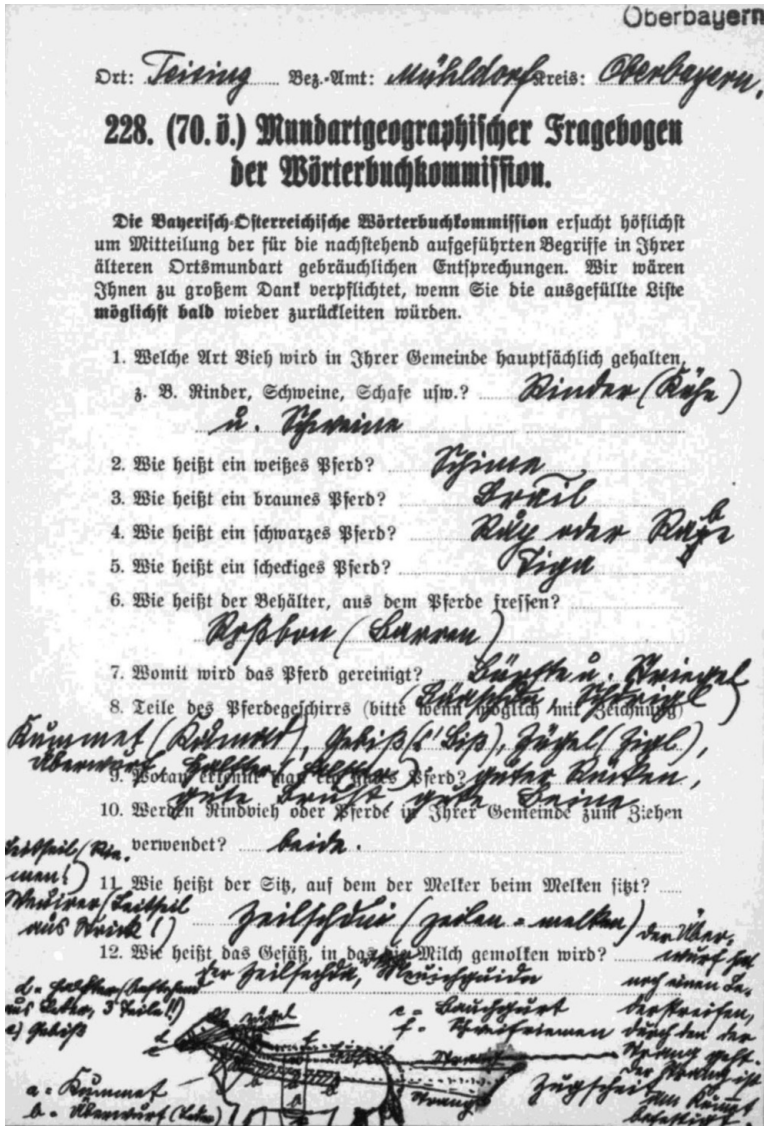 Oberbayern
Ort: Teising Bez.-Amt: Mühldorf Kreis: Oberbayern.
228. (70. ö.) Mundartgeographischer Fragebogen
der Wörterbuchkommission.
Die Bayerisch-Österreichische Wörterbuchkommission ersucht höflichst
um Mitteilung der für die nachstehend aufgeführten Begriffe in Ihrer
älteren Ortsmundart gebräuchlichen Entsprechungen. Wir wären
Ihnen zu großem Dank verpflichtet, wenn Sie die ausgefüllte Liste
möglichst bald wieder zurückleiten würden.
1. Welche Art Vieh wird in Ihrer Gemeinde hauptsächlich gehalten,
z. B. Rinder, Schweine, Schafe usw.? Rinder (Kühe)
u. Schweine
2. Wie heißt ein weißes Pferd? Schime
3. Wie heißt ein braunes Pferd? Brail
4. Wie heißt ein schwarzes Pferd? Rap oder
5. Wie heißt ein scheckiges Pferd? Tiga
6. Wie heißt der Behälter, aus dem Pferde fressen?
(Barren)
7. Womit wird das Pferd gereinigt? Bürste u. Striegel
8. Teile des Pferdegeschirrs (bitte wenn möglich mit Zeichnung)
Kummet, Gebiß (! Biß), Zügel (Zigl),
Überwurf, Halfter
9. Woran erkennt man ein gutes Pferd? guter Rücken,
gute Brust, gute Beine
10. Werden Rindvieh oder Pferde in Ihrer Gemeinde zum Ziehen
verwendet? beide.
Leitseil (Riemen!)
(Leitseil
aus Strick!)
11. Wie heißt der Sitz, auf dem der Melker beim Melken sitzt?
(= melken)
12. Wie heißt das Gefäß, in das die Milch gemolken wird?
der Überwurf hat
noch einen Lederstreifen,
durch den der
Strang geht.
Der Strang ist
zum Kummet
befestigt.
d = Halfter
aus Leder, 3 Teile!!)
e) Gebiß
Zügel
e = Bauchgurt
f = Schweifriemen
Strang
Zugscheit
Strang
a = Kummet
b = Überwurf (Leder)